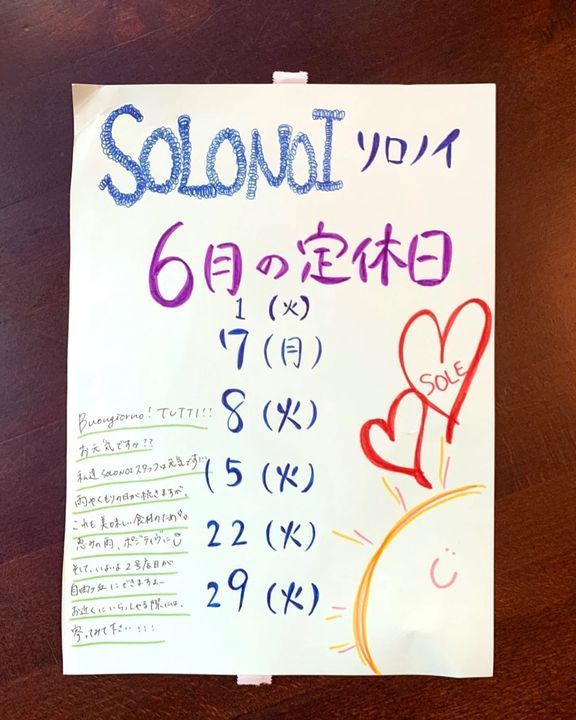 SOLONOI ソロノイ
6月の定休日
1 (火)
7 (月)
8 (火)
15 (火)
22 (火)
29 (火)
SOLE
Buongiorno! TUTTI!!
お元気ですか??
私達SOLONOIスタッフは元気です…
雨やくもりの日が続きますが、
これも美味しい食材のため
恵みの雨、ポジティヴに
そして、いよいよ2号店目が
自由ヶ丘にできますよー
お近くにいらしゃる際には、
寄ってみて下さい!!!